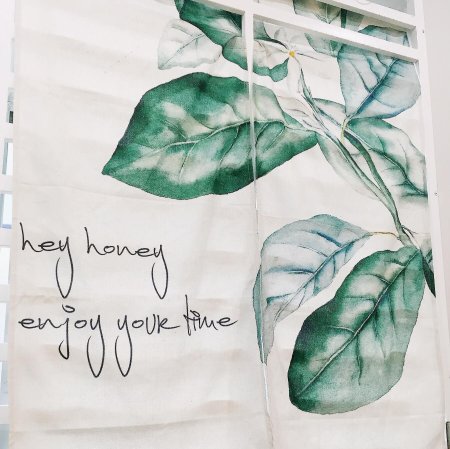 hey honey
enjoy your time